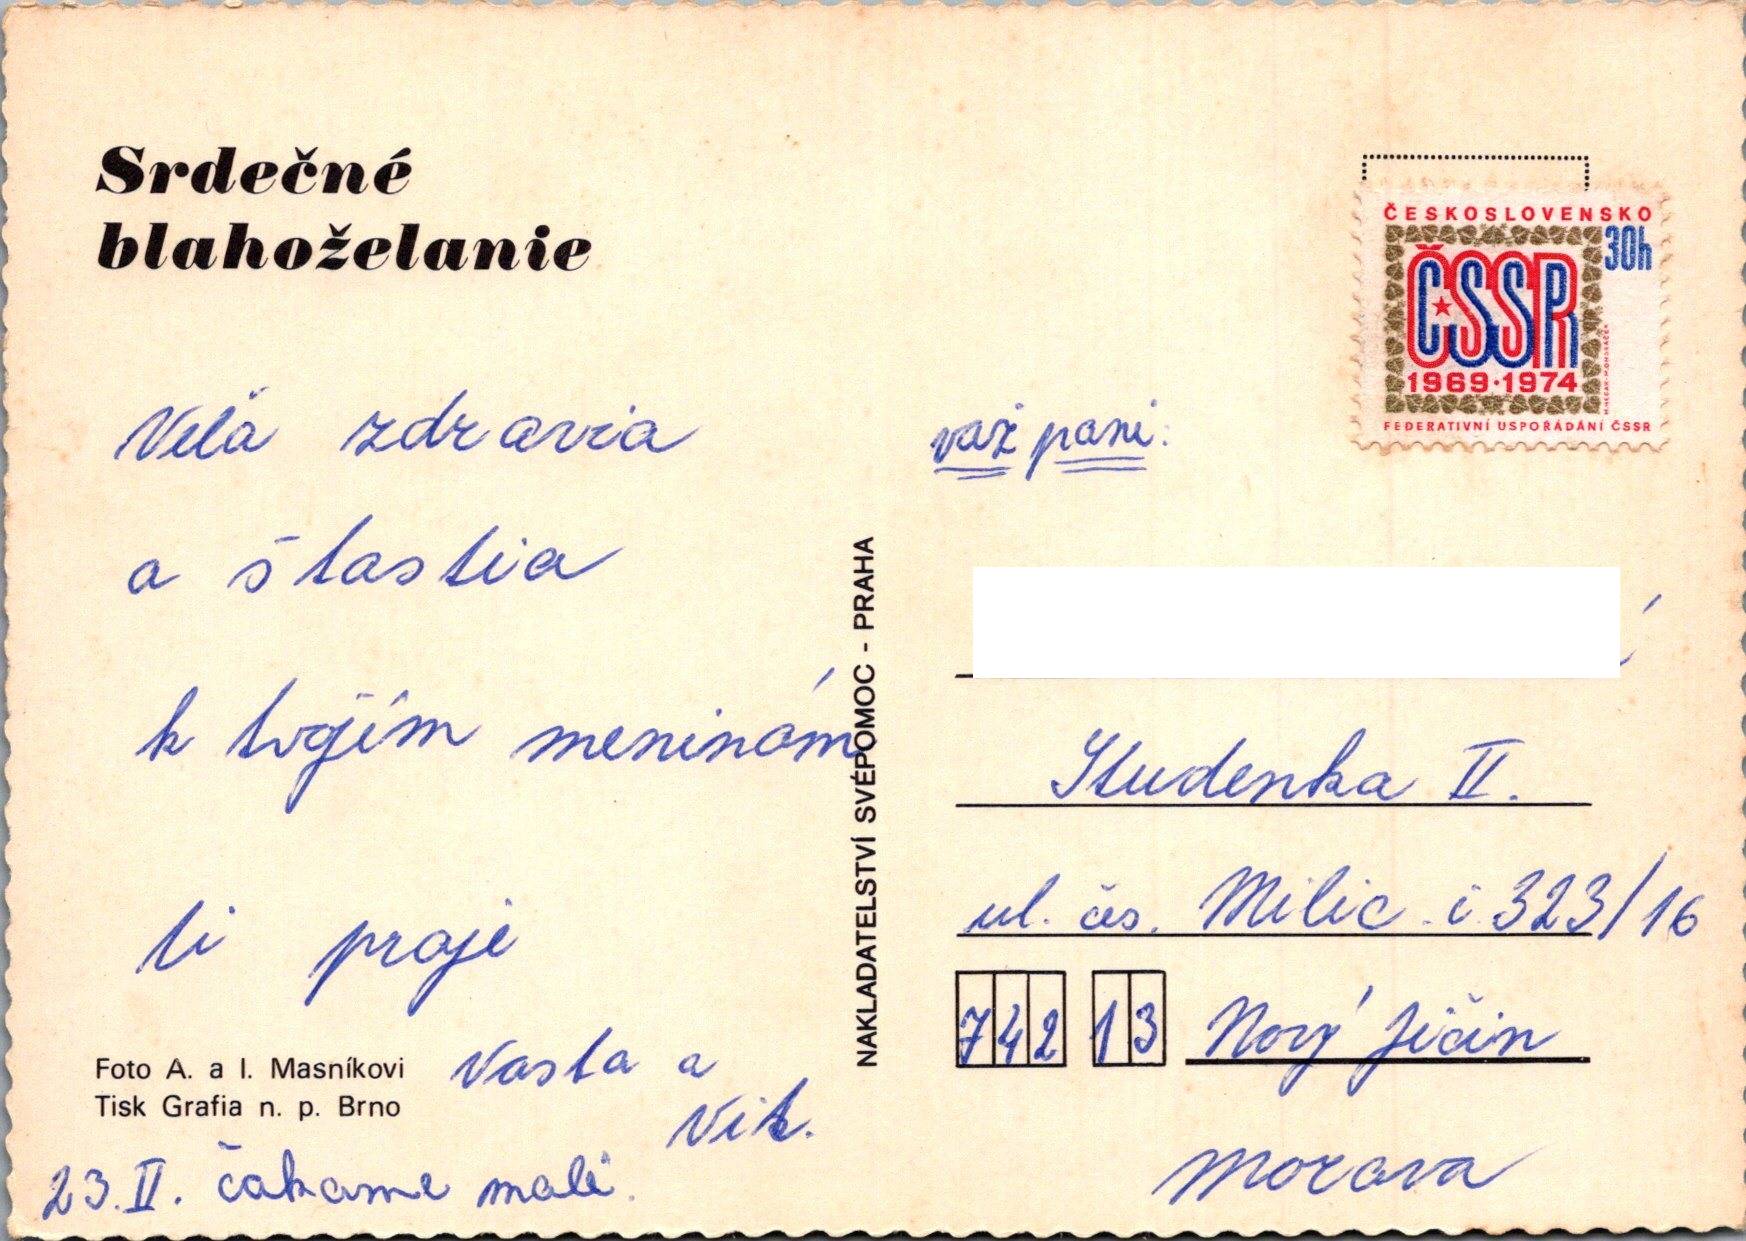 Srdečné
blahoželanie
Velа zdravia
a štastia
k tvojím meninám
ti praje
Vasta a
Vik.
23.II. čakame malé.
Foto A. a I. Masníkovi
Tisk Grafia n. p. Brno
NAKLADATELSTVÍ SVÉPOMOC - PRAHA
ČESKOSLOVENSKO
30h
ČSSR
1969·1974
FEDERATIVNÍ USPOŘÁDÁNÍ ČSSR
važ pani:
Studenka II.
ul. čs. Milic. i 323/16
742 13 Nový Jičin
Morava